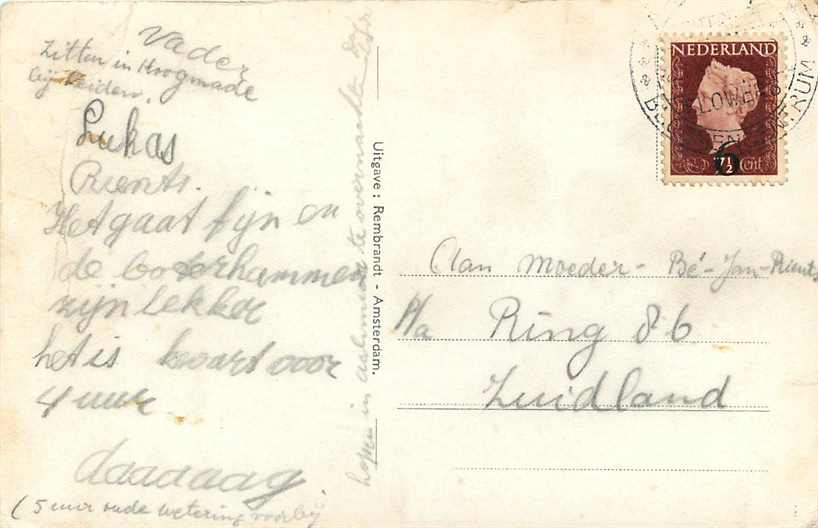 Vader
zitten in Hoogmade
bij Leiden,
Lukas
Rients.
Het gaat fijn en
de boterhammen
zijn lekker
het is kwart voor
4 uur
daaaaag
(5 uur oude wetering voorbij
hopen in aalsmeer te overnachten
Uitgave : Rembrandt - Amsterdam.
NEDERLAND
6
7½ cent
BLOEMEN CENTRUM
Aan Moeder - Bé - Jan - Rients
P/a Ring 86
Zuidland